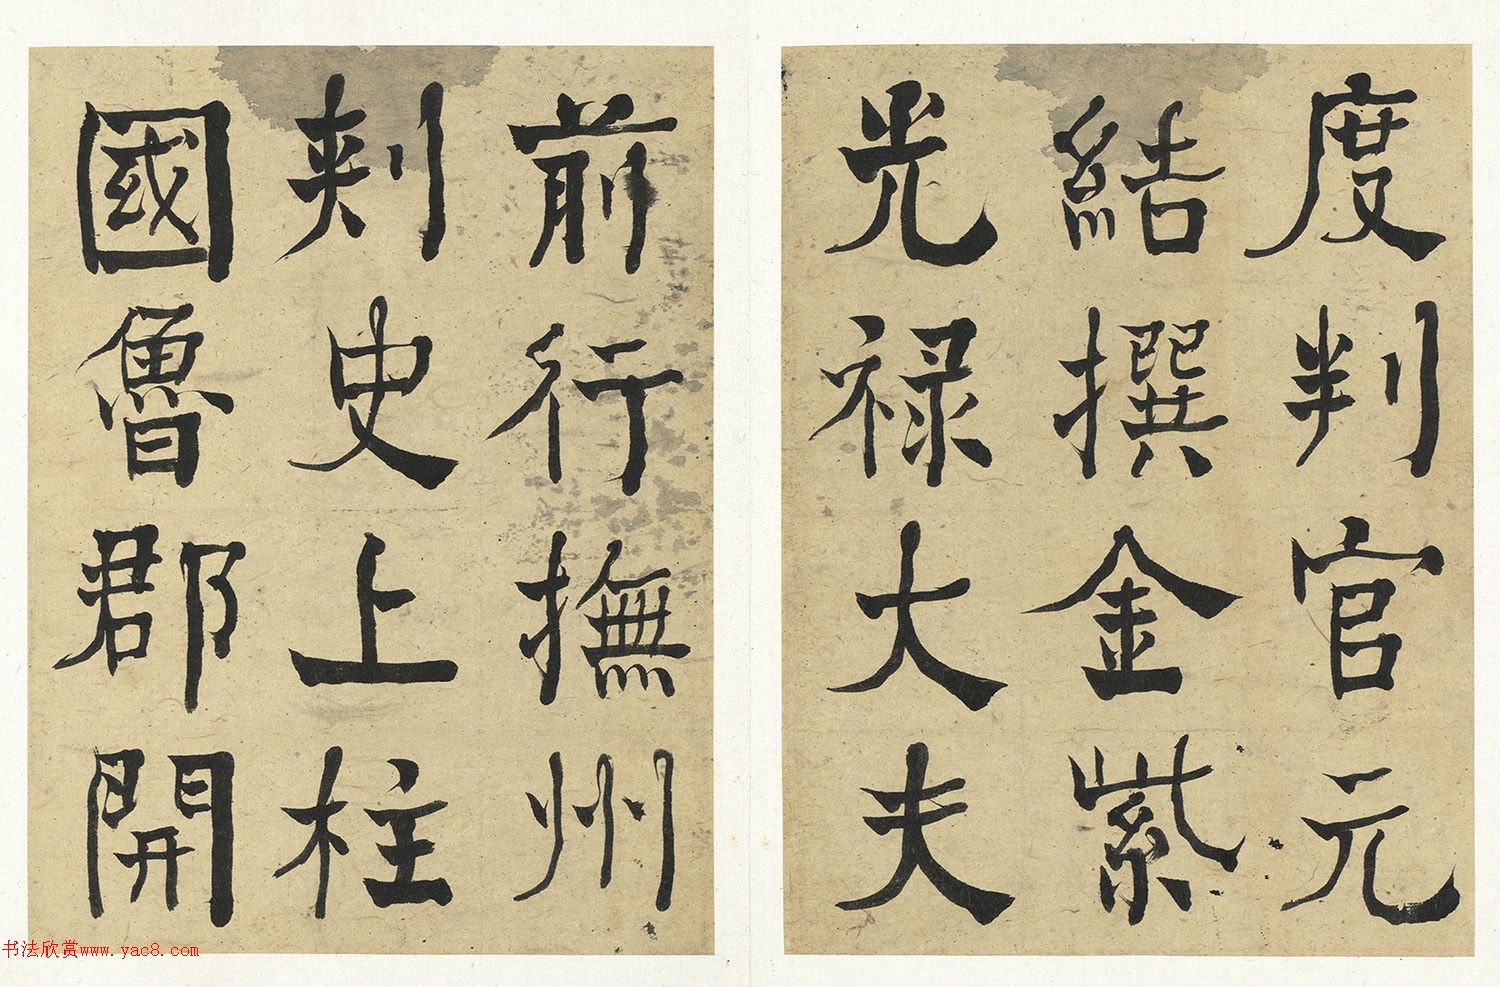 度判官元
結撰金紫
光禄大夫
前行撫州
刾史上柱
國魯郡開
书法欣赏www.yac8.com